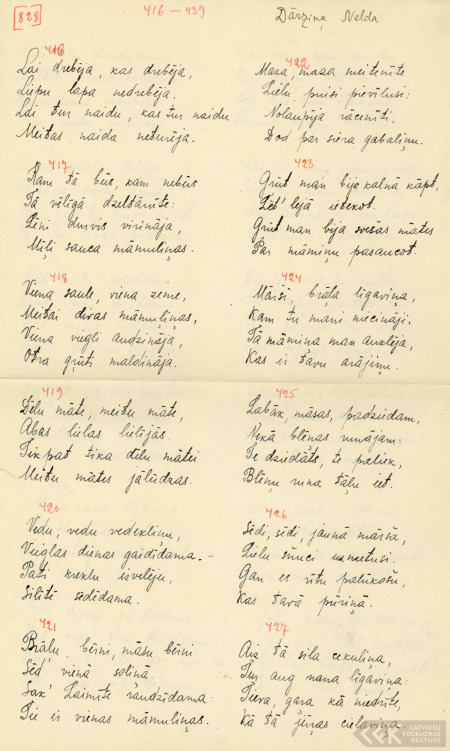 [828]
416 – 439
Dārziņa Nelda
416
Lai drebēja, kas drebēja,
Liepu lapa nedrebēja.
Lai tur naidu, kas tur naidu
Meitas naida neturēja.
417
Kam tā būs, kam nebūs
Tā vēlīgā dzeltārīte:
Lēni durvis virināja,
Mīļi sauca māmuliņas.
418
Viena saule, viena zeme,
Meitai divas māmuliņas,
Viena viegli audzināja,
Otra grūti maldināja.
419
Dēlu māte, meitu māte,
Abas lielas lielījās.
Tikpat tika dēlu mātei
Meitu mātes jālūdzas.
420
Vedu, vedu vedekliņu,
Vieglas dienas gaidīdama. –
Pati kreklu izvelēju,
Silītē sēdēdama.
421
Brāļu bērni, māsu bērni
Sēd' vienā soliņā.
Sak' Laimīte raudzīdama:
Tie ir vienas māmuliņas.
422
Maza, maza meitenīte
Lielu puisi pievīlusi:
Nolaupīja rācenīti,
Dod par siera gabaliņu.
423
Grūt man bija kalnā kāpt,
Lēt' lejā ietekot.
Grūt man bija svešas mātes
Par māmiņu pasaucot.
424
Mārši, brāļa līgaviņa,
Kam tu mani niecināji.
Tā māmiņa man auklēja,
Kas ir tavu arājiņu.
425
Labāk, māsas, padziedam,
Nekā blēņas runājam:
Te dziedāts, te paliek,
Blēņu runa tāļu iet.
426
Sēdi, sēdi, jaunā mārša,
Lielu šņuci uzmetusi.
Gan es rītu palūkošu,
Kas tavā pūriņā.
427
Aiz tā sila cekuliņa,
Tur aug mana līgaviņa:
Tieva, gara kā niedrīte,
Kā tā jūras cielaviņa
LATVIEŠU
FOLKLORAS
KRĀTUVE